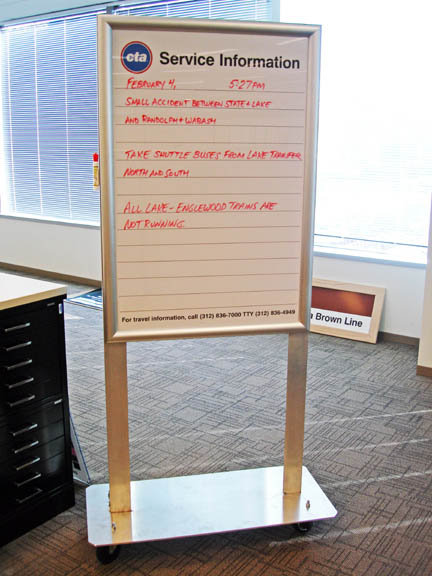 cta Service Information
FEBRUARY 4, 5:27PM
SMALL ACCIDENT BETWEEN STATE + LAKE
AND RANDOLPH + WABASH
TAKE SHUTTLE BUSES FROM LAKE TRANSFER
NORTH AND SOUTH
ALL LAKE - ENGLEWOOD TRAINS ARE
NOT RUNNING.
For travel information, call (312) 836-7000 TTY (312) 836-4949
Brown Line